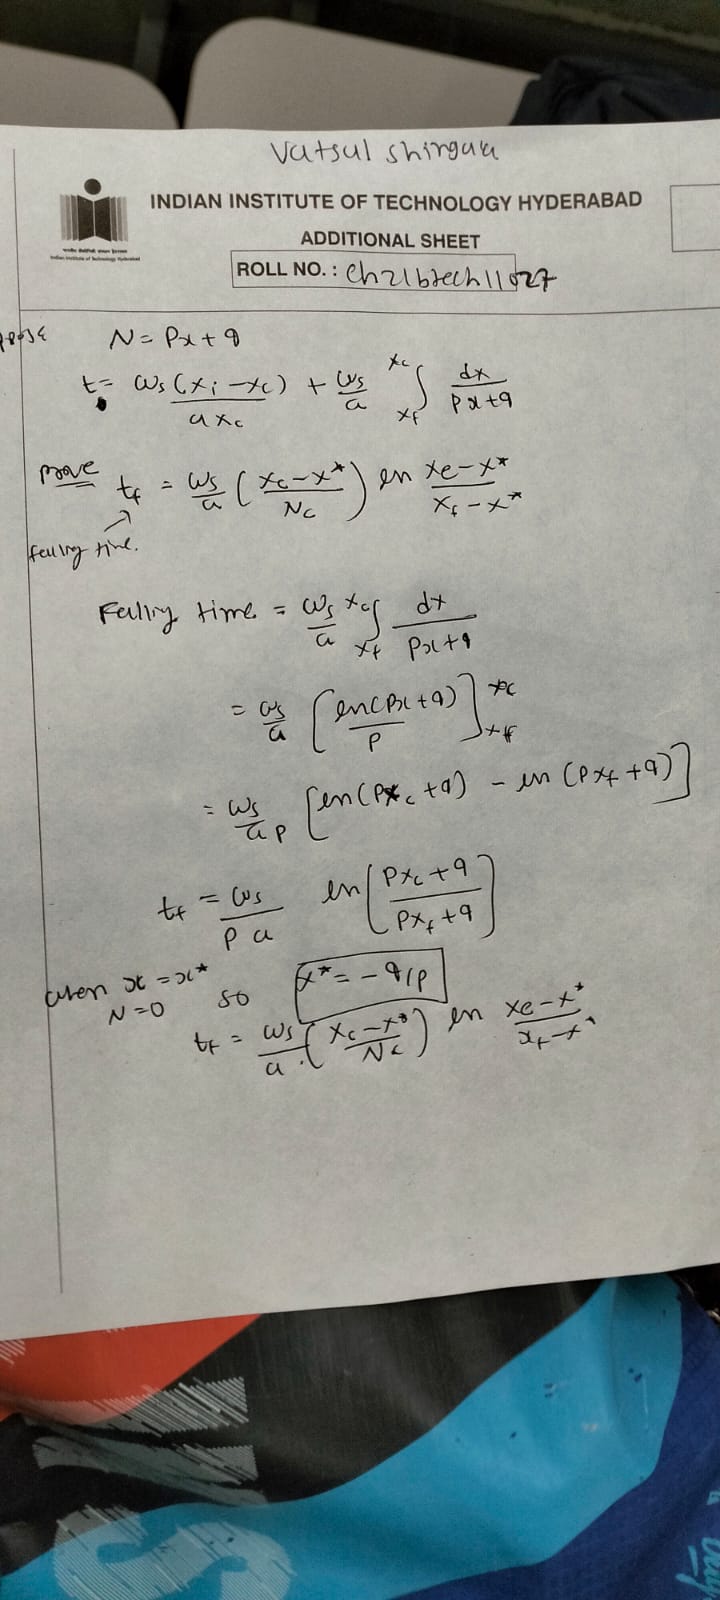 Vatsal Shingala
INDIAN INSTITUTE OF TECHNOLOGY HYDERABAD
ADDITIONAL SHEET
ROLL NO. : Ch21btech11027
N = Px + q
t = ws (xi - xc) / a xc + ws/a xc∫xf dx / px + q
prove tf = ws/a ( xc - x* / Nc ) ln xc - x* / xf - x*
falling time.
Falling time = ws/a xc∫xf dx / px + q
= ws/a [ ln(px + q) / p ] xc xf
= ws/ap [ ln(pxc + q) - ln (pxf + q) ]
tf = ws / p a ln [ pxc + q / pxf + q ]
when x = x*
N = 0 so x* = - q/p
tf = ws/a . ( xc - x* / Nc ) ln xc - x* / xf - x*